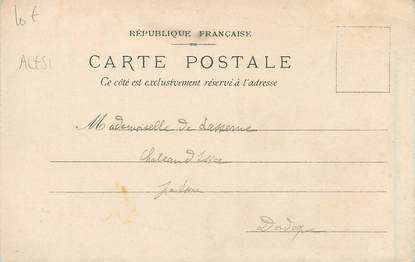 lot
RÉPUBLIQUE FRANÇAISE
CARTE POSTALE
Ce côté est exclusivement réservé à l'adresse
Mademoiselle de Lasserre
Chateau d'
Dordogne